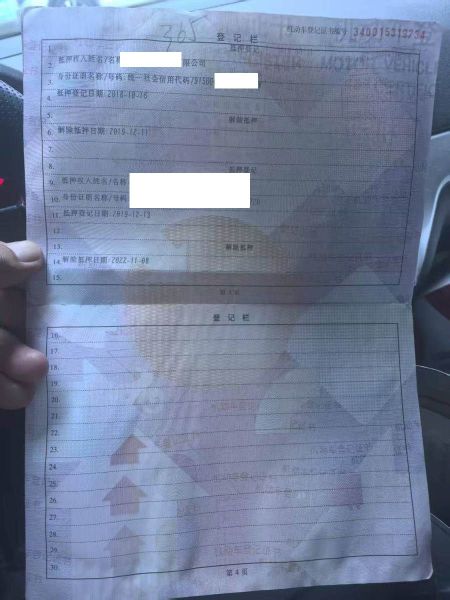 365
登记栏
机动车登记证书编号 340015313734
MOTOR VEHICLE
1. 抵押登记
2. 抵押权人姓名/名称 限公司
3. 身份证明名称/号码:统一社会信用代码/91500
4. 抵押登记日期:2018-10-16
5.
6. 解除抵押
7. 解除抵押日期:2019-12-11
8. 抵押登记
9. 抵押权人姓名/名称
10. 身份证明名称/号码
11. 抵押登记日期:2019-12-13
12.
13. 解除抵押
14. 解除抵押日期:2022-11-08
15.
第 3 页
登记栏
16.
17.
18.
19.
20.
21.
22.
23.
24.
25.
26.
27.
28.
29.
30.
第 4 页